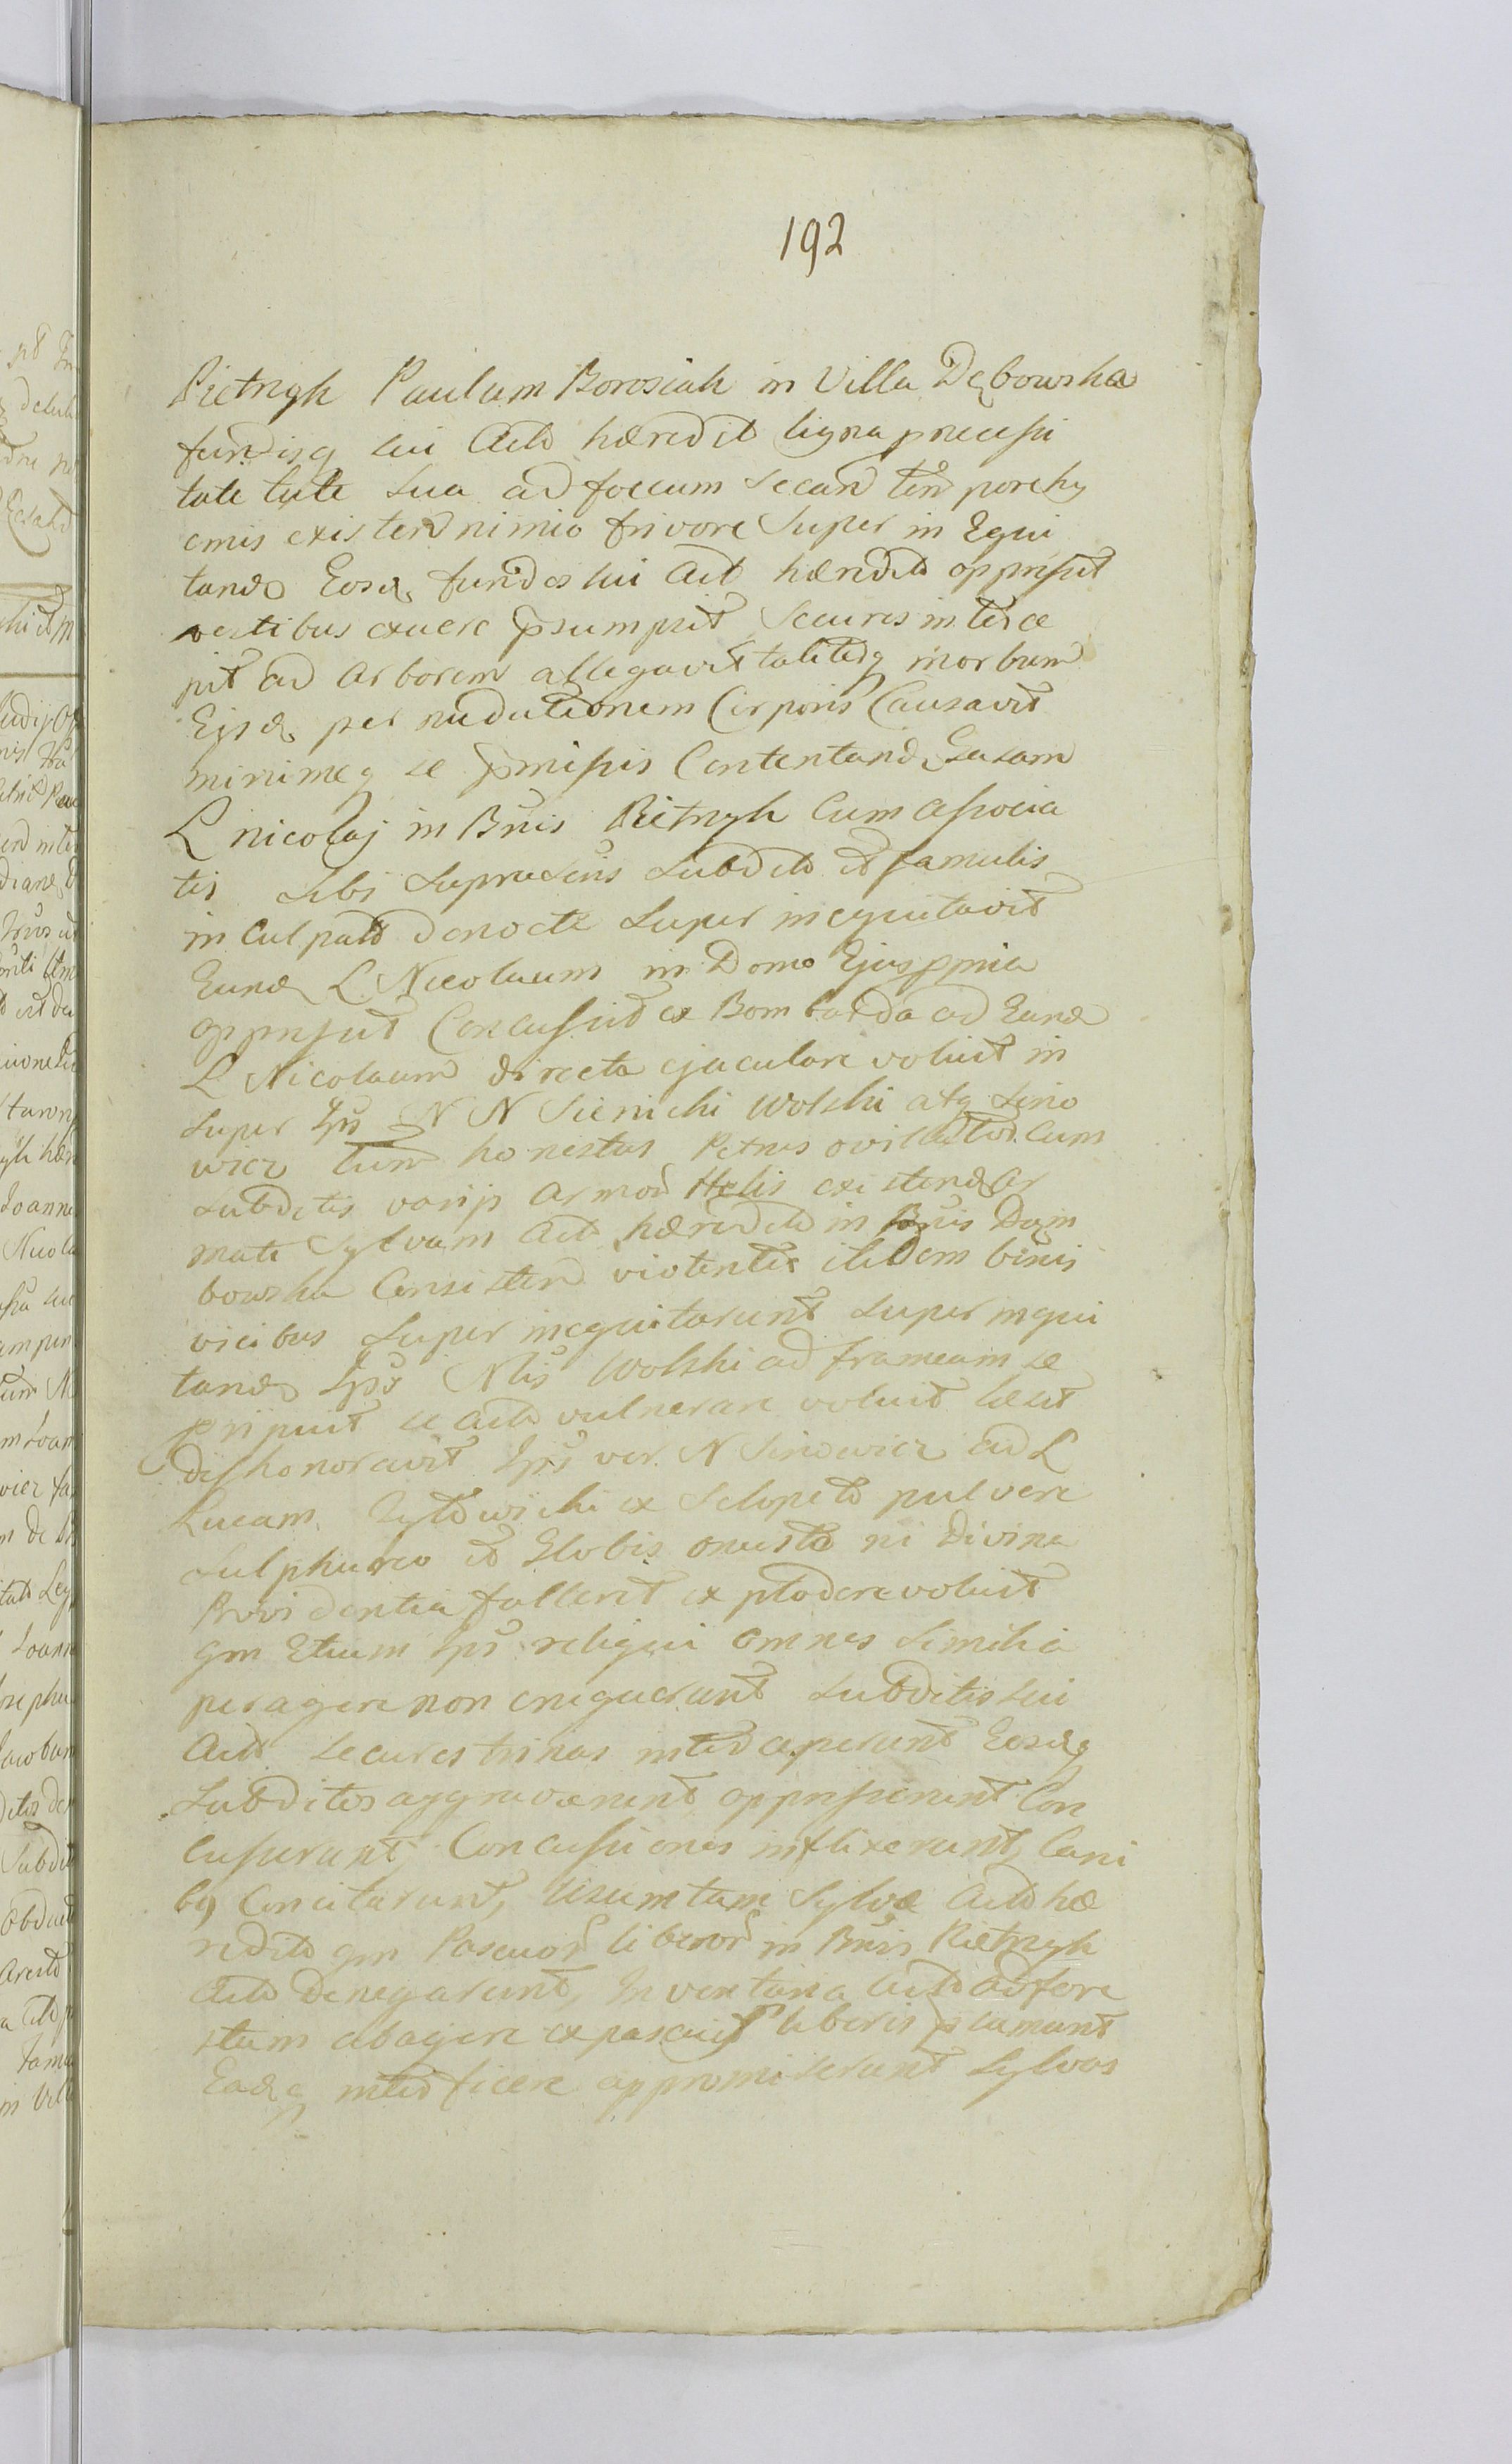 192
Pietrzyk Paulum Borosiak in Villa Dębowska
fundisq sui Acto hæredit ligna pnecessi
tate tute sua ad foccum secand tem porehy
emis existen nimio frivore super in Equi
tando Eosq fundos sui Act hæredit oppressit
vestibus exuere psumpsit secures interce
pit ad arborem allegavit talitesq morbum
Ejsd per nudationem Corporis Causavit
minimeq se pmissis Contentand Casam
L nicolaj in Bnis Pietrzyk Cum associa
tis sibi suprascriis subdit et famulis
in Culpatt de nocte super inequitavit
Eund L Nicolaum in Domo Ejus ppria
oppressit Concussit ex Bombarda ad Eund
L Nicolaum directa ejaculare voluit in
super Ips N N Sienicki Wolski atq Sino
wicz tum honestus Petrus ovil Cum
subditis varijs armor telis existend ar
mate Sylvam Act hæredit in Bnis Dęm
bowska Consisten violenter itidem binis
vicibus super inequitarunt super inqui
tando Ips Nlis Wolski ad frameam se
pripuit et actt vulnerare voluit læsit
dishonoravit Ips ver N Sinowicz ad L
Lucam ex sclopeto pulvere
sulphureo et Globis onusto ni Divina
Providentia falleret explodere voluit
qm Etiam Ips reliqui omnes similia
peragere non enequerunt subditis sui
Act secures trinas intercæperunt Eosdq
subditos aggravarunt oppresserunt Con
cusserunt, Concussiones inflixerunt, Cani
bq Concitarunt, Usum tam Sylvæ Act hæ
redit qm Pascuor liberor in Bnis Pietrzyk
Act denegarunt, Inventaria Act ad fore
stum abagere ex pascuis liberis psumunt
Eadq interficere appromiserunt Sylvas